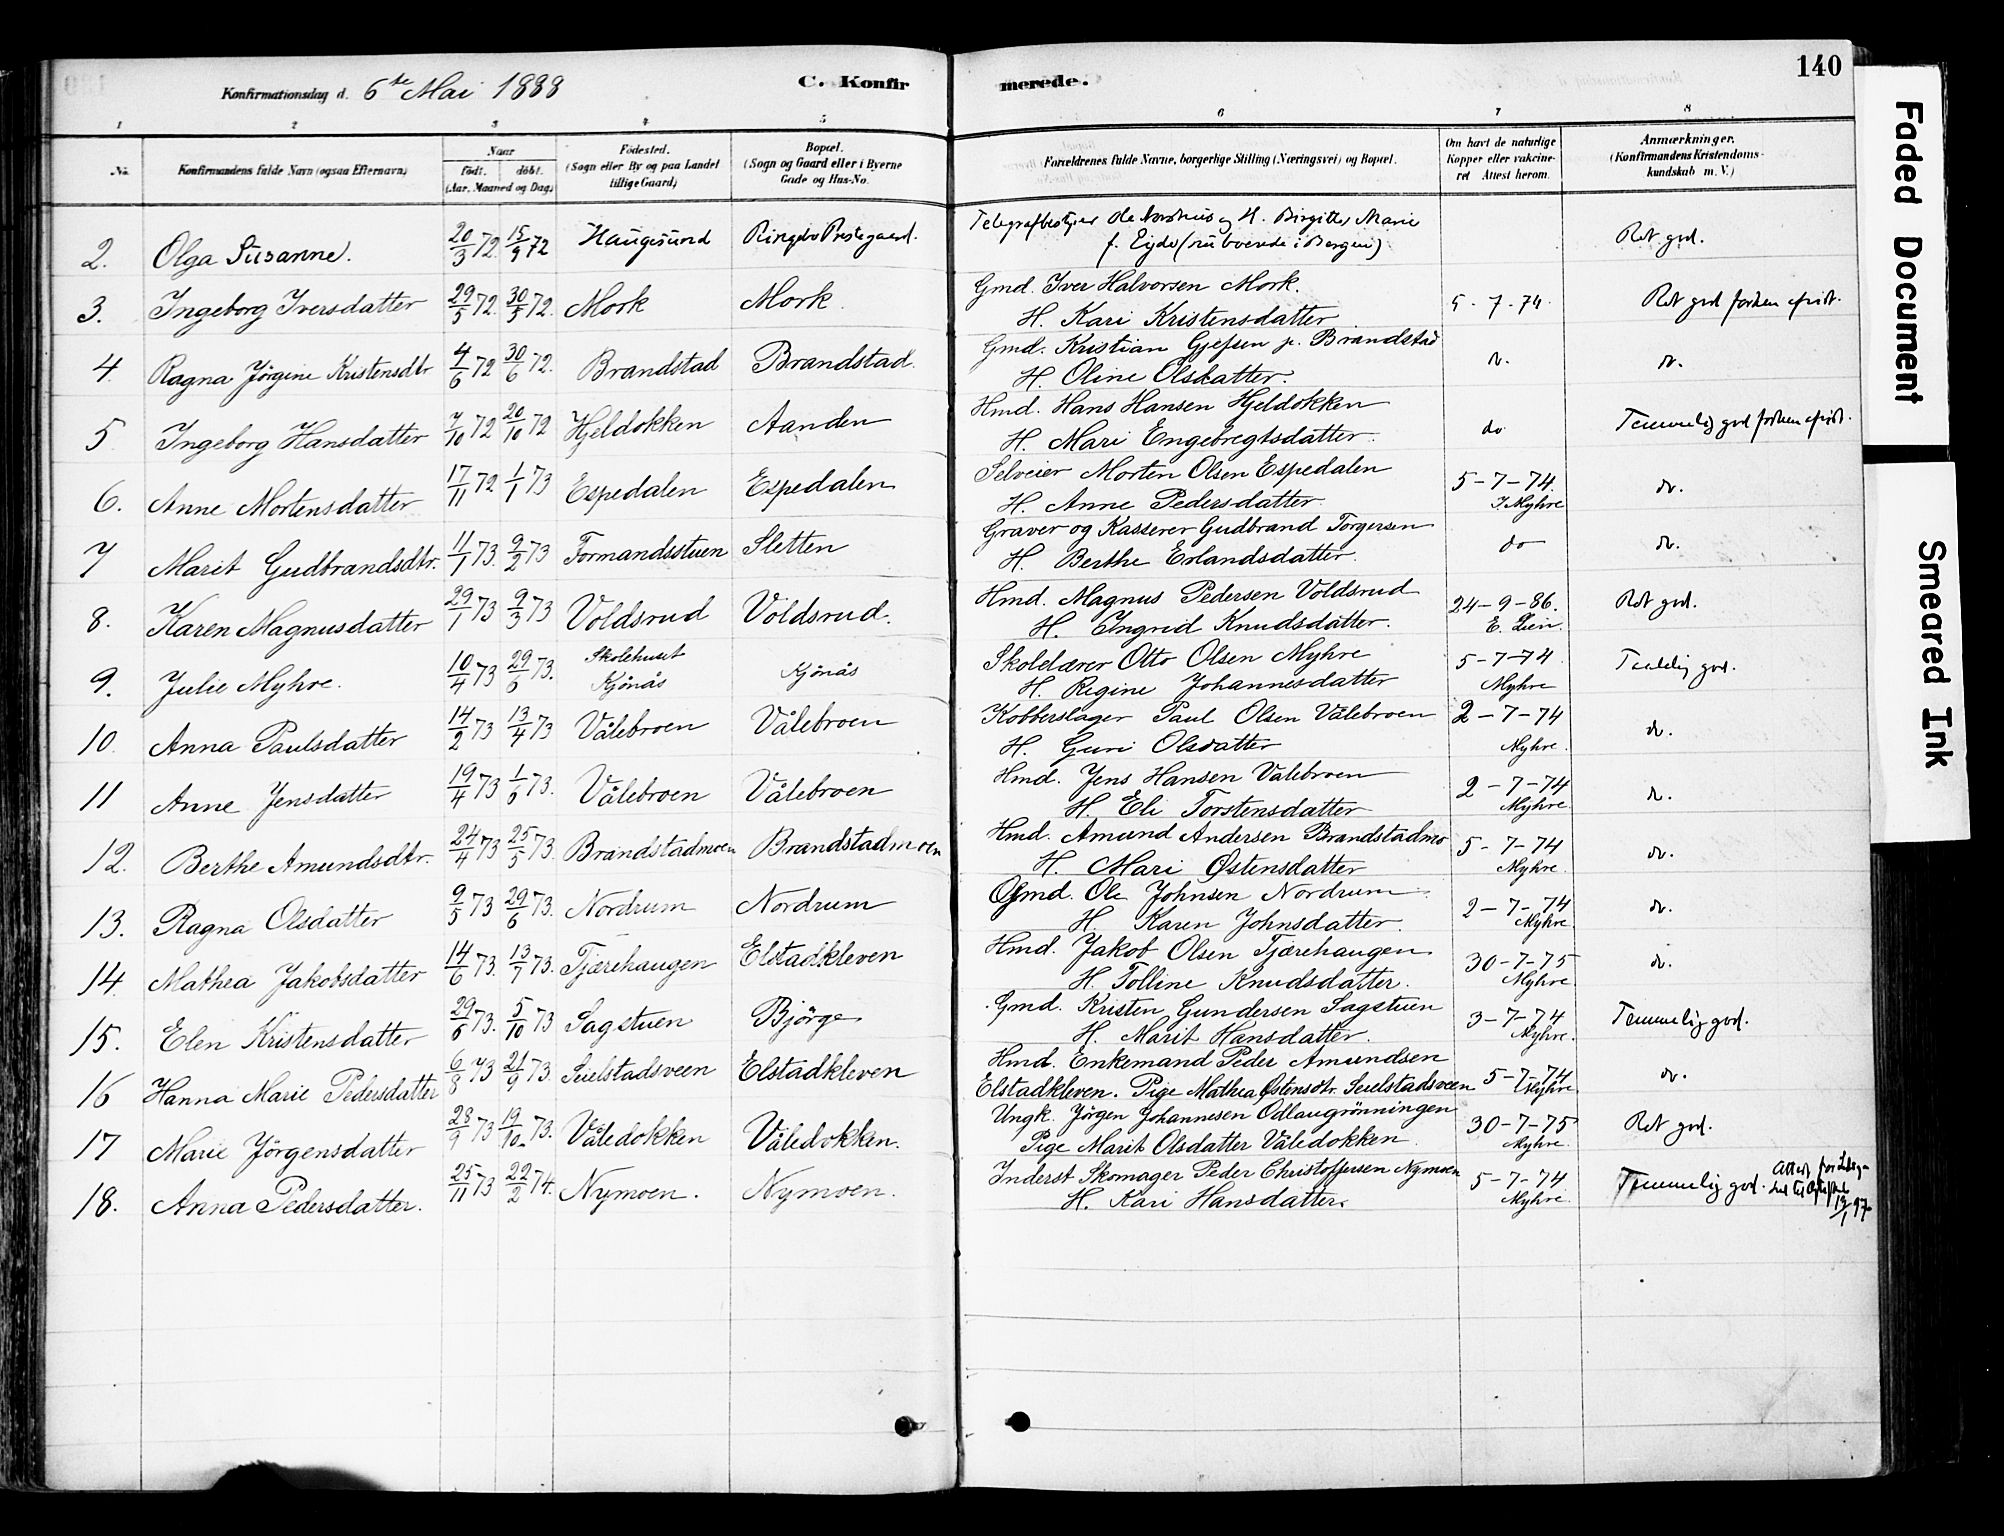 140
Konfirmationsdag d. 6te Mai 1888 C. Konfirmerede.
1 2 3 4 5 6 7 8
No. Konfirmandens fulde Navn (ogsaa Efternavn) Naar født. døbt. (Aar, Maaned og Dag) Fødested. (Sogn eller By og paa Landet tillige Gaard) Bopæl. (Sogn og Gaard eller i Byerne Gade og Hus-No. Forældrenes fulde Navne, borgerlige Stilling (Næringsvei) og Bopæl. Om havt de naturlige Kopper eller vakcineret Attest herom. Anmærkninger. (Konfirmandens Kristendomskundskab m. V.)
2. Olga Susanne. 20/3 72. 15/9 72 Haugesund Ringebo Prestegaard. Telegrafbestyrer Ole H. Birgitte Marie
f. Eide (nu boende i Bergen) Ret god.
3. Ingeborg Iversdatter 29/5 72. 30/5 72. Mork Mork. Gmd. Iver Halvorsen Mork.
H. Kari Kristensdatter 5-7-74. Ret god
4. Ragna Jørgine Kristensdtr 4/6 72 30/6 72. Brandstad Brandstad. Gmd. Kristian Gjefsen p. Brandstad
H. Oline Olsdatter. do. do.
5 Ingeborg Hansdatter 7/10 72 20/10 72 Hjeldokken Aanden Hmd. Hans Hansen Hjeldokken
H. Mari Engebregtsdatter. do Temmelig god
6. Anne Mortensdatter 17/11 72 1/1 73 Espedalen Espedalen Selveier Morten Olsen Espedalen
H. Anne Pedersdatter 5-7-74. Myhre do.
7 Marit Gudbrandsdtr. 11/1 73. 9/2 73 Formandsstuen Sletten Graver og Kasserer Gudbrand Torgersen
H. Berthe Erlandsdatter. do do.
8. Karen Magnusdatter 29/1 73 9/3 73 Voldsrud Voldsrud. Hmd. Magnus Pedersen Voldsrud
H. Ingrid Knudsdatter. 24-9-86. E. Lien. Ret god.
9. Julie Myhre. 10/4 73 29/6 73. Skolehuset Kjönås Kjönås Skolelærer Otto Olsen Myhre
H. Regine Johannesdatter 5-7-74. Myhre god.
10. Anna Paulsdatter 14/2 73 13/4 73 Vålebroen Vålebroen Kobberslager Paul Olsen Vålebroen
H. Guri Olsdatter 2-7-74 Myhre. do.
11 Anne Jensdatter 19/4 73 1/6 73. Vålebroen Vålebroen Hmd. Jens Hansen Valebroen
H. Eli Torstensdatter 2-7-74 Myhre. do.
12. Berthe Amundsdtr. 24/4 73 25/5 73. Brandstadmoen Brandstadmoen Hmd. Amund Andersen Brandstadmo
H. Mari Østensdatter 5-7-74 Myhre. do.
13. Ragna Olsdatter 9/5 73 29/6 73. Nordrum Nordrum Gmd. Ole Johnsen Nordrum
H. Karen Johnsdatter. 2-7-74 Myhre. do.
14. Mathea Jakobsdatter 14/6 73. 13/7 73. Tjærehaugen Elstadkleven Hmd. Jakob Olsen Tjærehaugen
H. Tolline Knudsdatter. 30-7-75 Myhre. do.
15. Elen Kristensdatter 29/6 73. 5/10 73 Sagstuen Bjørge Gmd. Kristen Gundersen Sagstuen
H. Marit Hansdatter. 3-7-74 Myhre. Temmelig god.
16 Hanna Marie Pedersdatter 6/8 73 21/9 73. Seielstadsveen Elstadkleven Hmd. Enkemand Peder Amundsen
Elstadkleven. Pige Mathea Østensdtr. Seielstadsveen 5-7-74 Myhre. do.
17 Marie Jörgensdatter 28/9 73 19/10 73. Våledokken Våledokken. Ungk. Jörgen Johannesen Odlaugrönningen
Pige Marit Olsdatter Våledokken 30-7-75 Myhre. Ret god.
18. Anna Pedersdatter. 25/11 73 22/2 74. Nymoen. Nymoen. Inderst Skomager Peder Christoffersen Nymoen
H. Kari Hansdatter. 5-7-74 Myhre. Temmelig god. Attest for 13/1 97
Faded Document
Smeared Ink